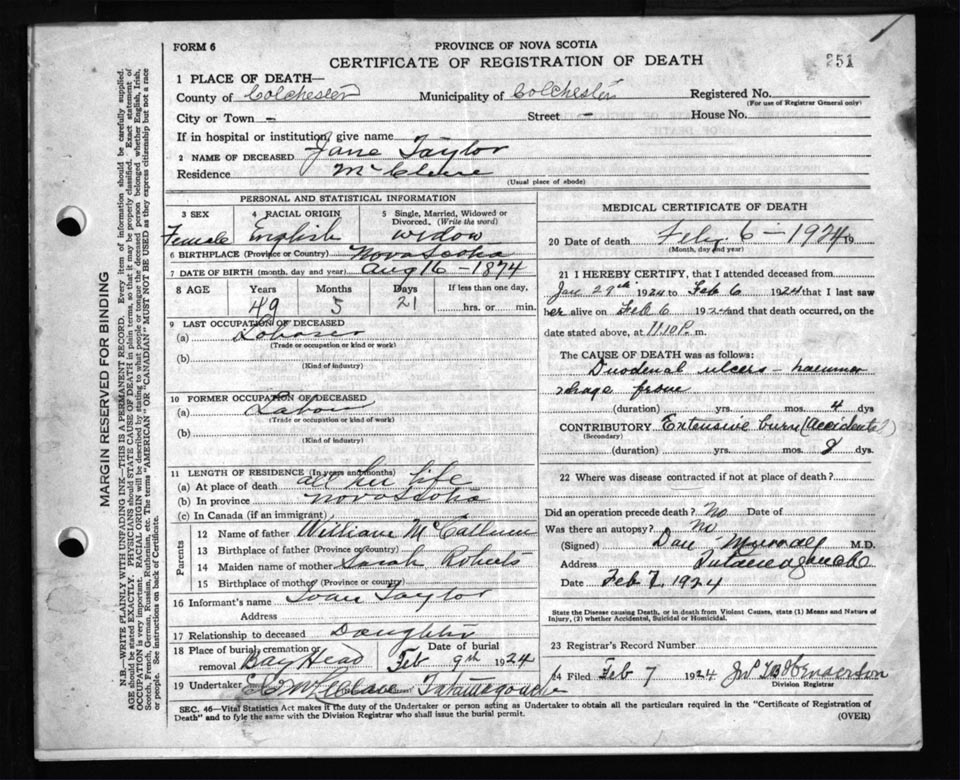 FORM 6
PROVINCE OF NOVA SCOTIA
CERTIFICATE OF REGISTRATION OF DEATH
351
1 PLACE OF DEATH—
County of Colchester Municipality of Colchester Registered No.
(For use of Registrar General only)
City or Town - Street - House No.
If in hospital or institution, give name
2 NAME OF DECEASED Jane Taylor
Residence
(Usual place of abode)
PERSONAL AND STATISTICAL INFORMATION
3 SEX 4 RACIAL ORIGIN 5 Single, Married, Widowed or Divorced. (Write the word)
Female English Widow
6 BIRTHPLACE (Province or Country) Nova Scotia
7 DATE OF BIRTH (month, day and year) Aug 16 - 1874
8 AGE Years Months Days If less than one day,
49 5 21 hrs. or min.
9 LAST OCCUPATION OF DECEASED
(a)
(Trade or occupation or kind or work)
(b)
(Kind of industry)
10 FORMER OCCUPATION OF DECEASED
(a) Labour
(Trade or occupation or kind of work)
(b)
(Kind of industry)
11 LENGTH OF RESIDENCE (In years and months)
(a) At place of death all her life
(b) In province Nova Scotia
(c) In Canada (if an immigrant)
Parents
12 Name of father William McCallum
13 Birthplace of father (Province or country)
14 Maiden name of mother Sarah Roberts
15 Birthplace of mother (Province or country)
16 Informant's name Taylor
Address
17 Relationship to deceased Daughter
18 Place of burial, cremation or removal Bay Head Date of burial Feb 9th 1924
19 Undertaker Tatamagouche
MEDICAL CERTIFICATE OF DEATH
20 Date of death Feby 6 - 1924 19
(Month, day and year)
21 I HEREBY CERTIFY, that I attended deceased from
Jan 29th 1924 to Feb 6 1924 that I last saw
her alive on Feb 6 1924 and that death occurred, on the
date stated above, at 11.10 P. m.
The CAUSE OF DEATH was as follows:
Duodenal ulcers - haemor
rhage from
(duration) yrs. mos. 4 dys
CONTRIBUTORY Extensive burn (accidental)
(Secondary)
(duration) yrs. mos. dys.
22 Where was disease contracted if not at place of death?
Did an operation precede death? No Date of
Was there an autopsy? No
(Signed) Dan M.D.
Address
Date Feb 7, 1924
State the Disease causing Death, or in death from Violent Causes, state (1) Means and Nature of
Injury, (2) whether Accidental, Suicidal or Homicidal.
23 Registrar's Record Number
24 Filed Feb 7 1924
Division Registrar
SEC. 46—Vital Statistics Act makes it the duty of the Undertaker or person acting as Undertaker to obtain all the particulars required in the "Certificate of Registration of
Death" and to fyle the same with the Division Registrar who shall issue the burial permit.
(OVER)
MARGIN RESERVED FOR BINDING
N.B.—WRITE PLAINLY WITH UNFADING INK—THIS IS A PERMANENT RECORD. Every item of information should be carefully supplied.
AGE should be stated EXACTLY. PHYSICIANS should STATE CAUSE OF DEATH in plain terms, so that it may be properly classified. Exact statement of
OCCUPATION is very important. RACIAL ORIGIN will be described by stating to what people or tongue the deceased person belonged whether English, Irish,
Scotch, French, German, Russian, Ruthenian, etc. The terms "AMERICAN" OR "CANADIAN" MUST NOT BE USED as they express citizenship but not a race
or people. See instructions on back of Certificate.